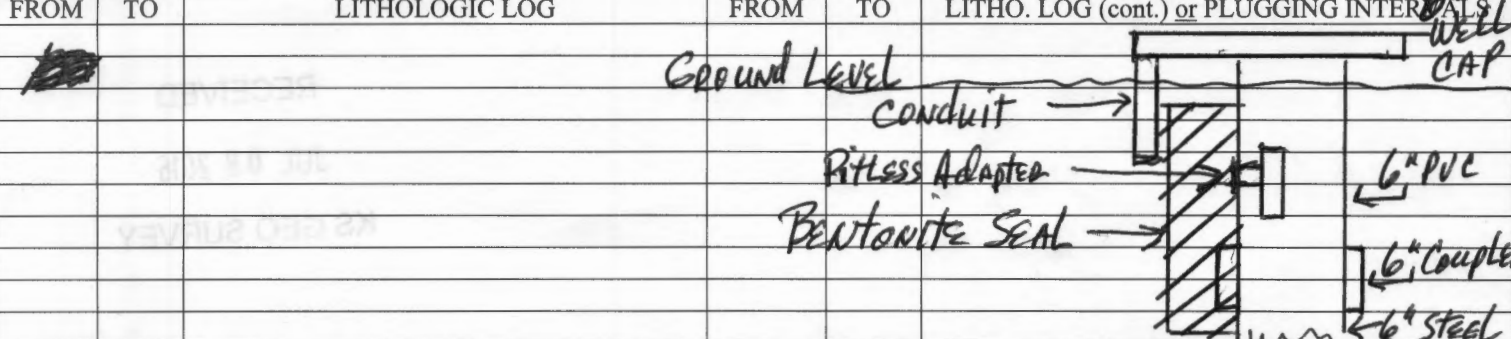 FROM TO LITHOLOGIC LOG FROM TO LITHO. LOG (cont.) or PLUGGING INTERVALS
WELL
CAP
GROUND LEVEL
CONDUIT
PITLESS ADAPTER
6" PVC
BENTONITE SEAL
6" COUPLE
6" STEEL
RECEIVED
KS GEO SURVEY